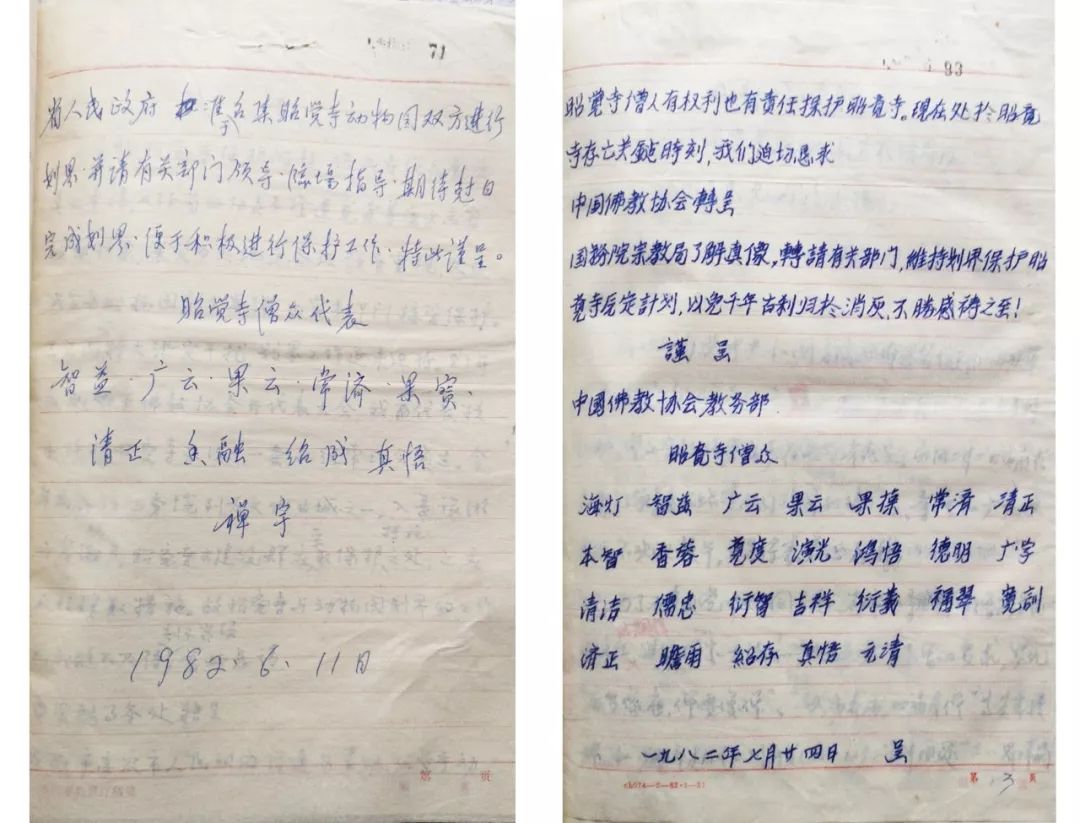 71
省人民政府 准予召集昭觉寺动物园双方进行
划界·并请有关部门领导·临场指导·期待尅日
完成划界·便于积极进行保护工作·特此谨呈。
昭觉寺僧众代表
智益·广云·果云·常济·果宾·
清正 鱼融 绍成 真悟
禅宇
1982 6. 11日
页
93
昭觉寺僧人有权利也有责任保护昭觉寺。现在处於昭觉
寺存亡关鍵時刻,我们迫切恳求
中国佛教协会轉呈
国务院宗教局了解真像,轉請有关部门,維持划界保护昭
觉寺后定計划,以免千年古刹归於消灰,不勝感禱之至!
謹 呈
中国佛教协会教务部.
昭觉寺僧众
海灯 智益 广云 果云 果操 常濟 清正
本智 香蓉 覺度 演光 鸿悟 德明 广学
清洁 儒忠 衍智 吉祥 衍義 福翠 寛訓
济正 瞻雨 紹存 真悟 元清
一九八二年七月廿四日 呈
第 3 页